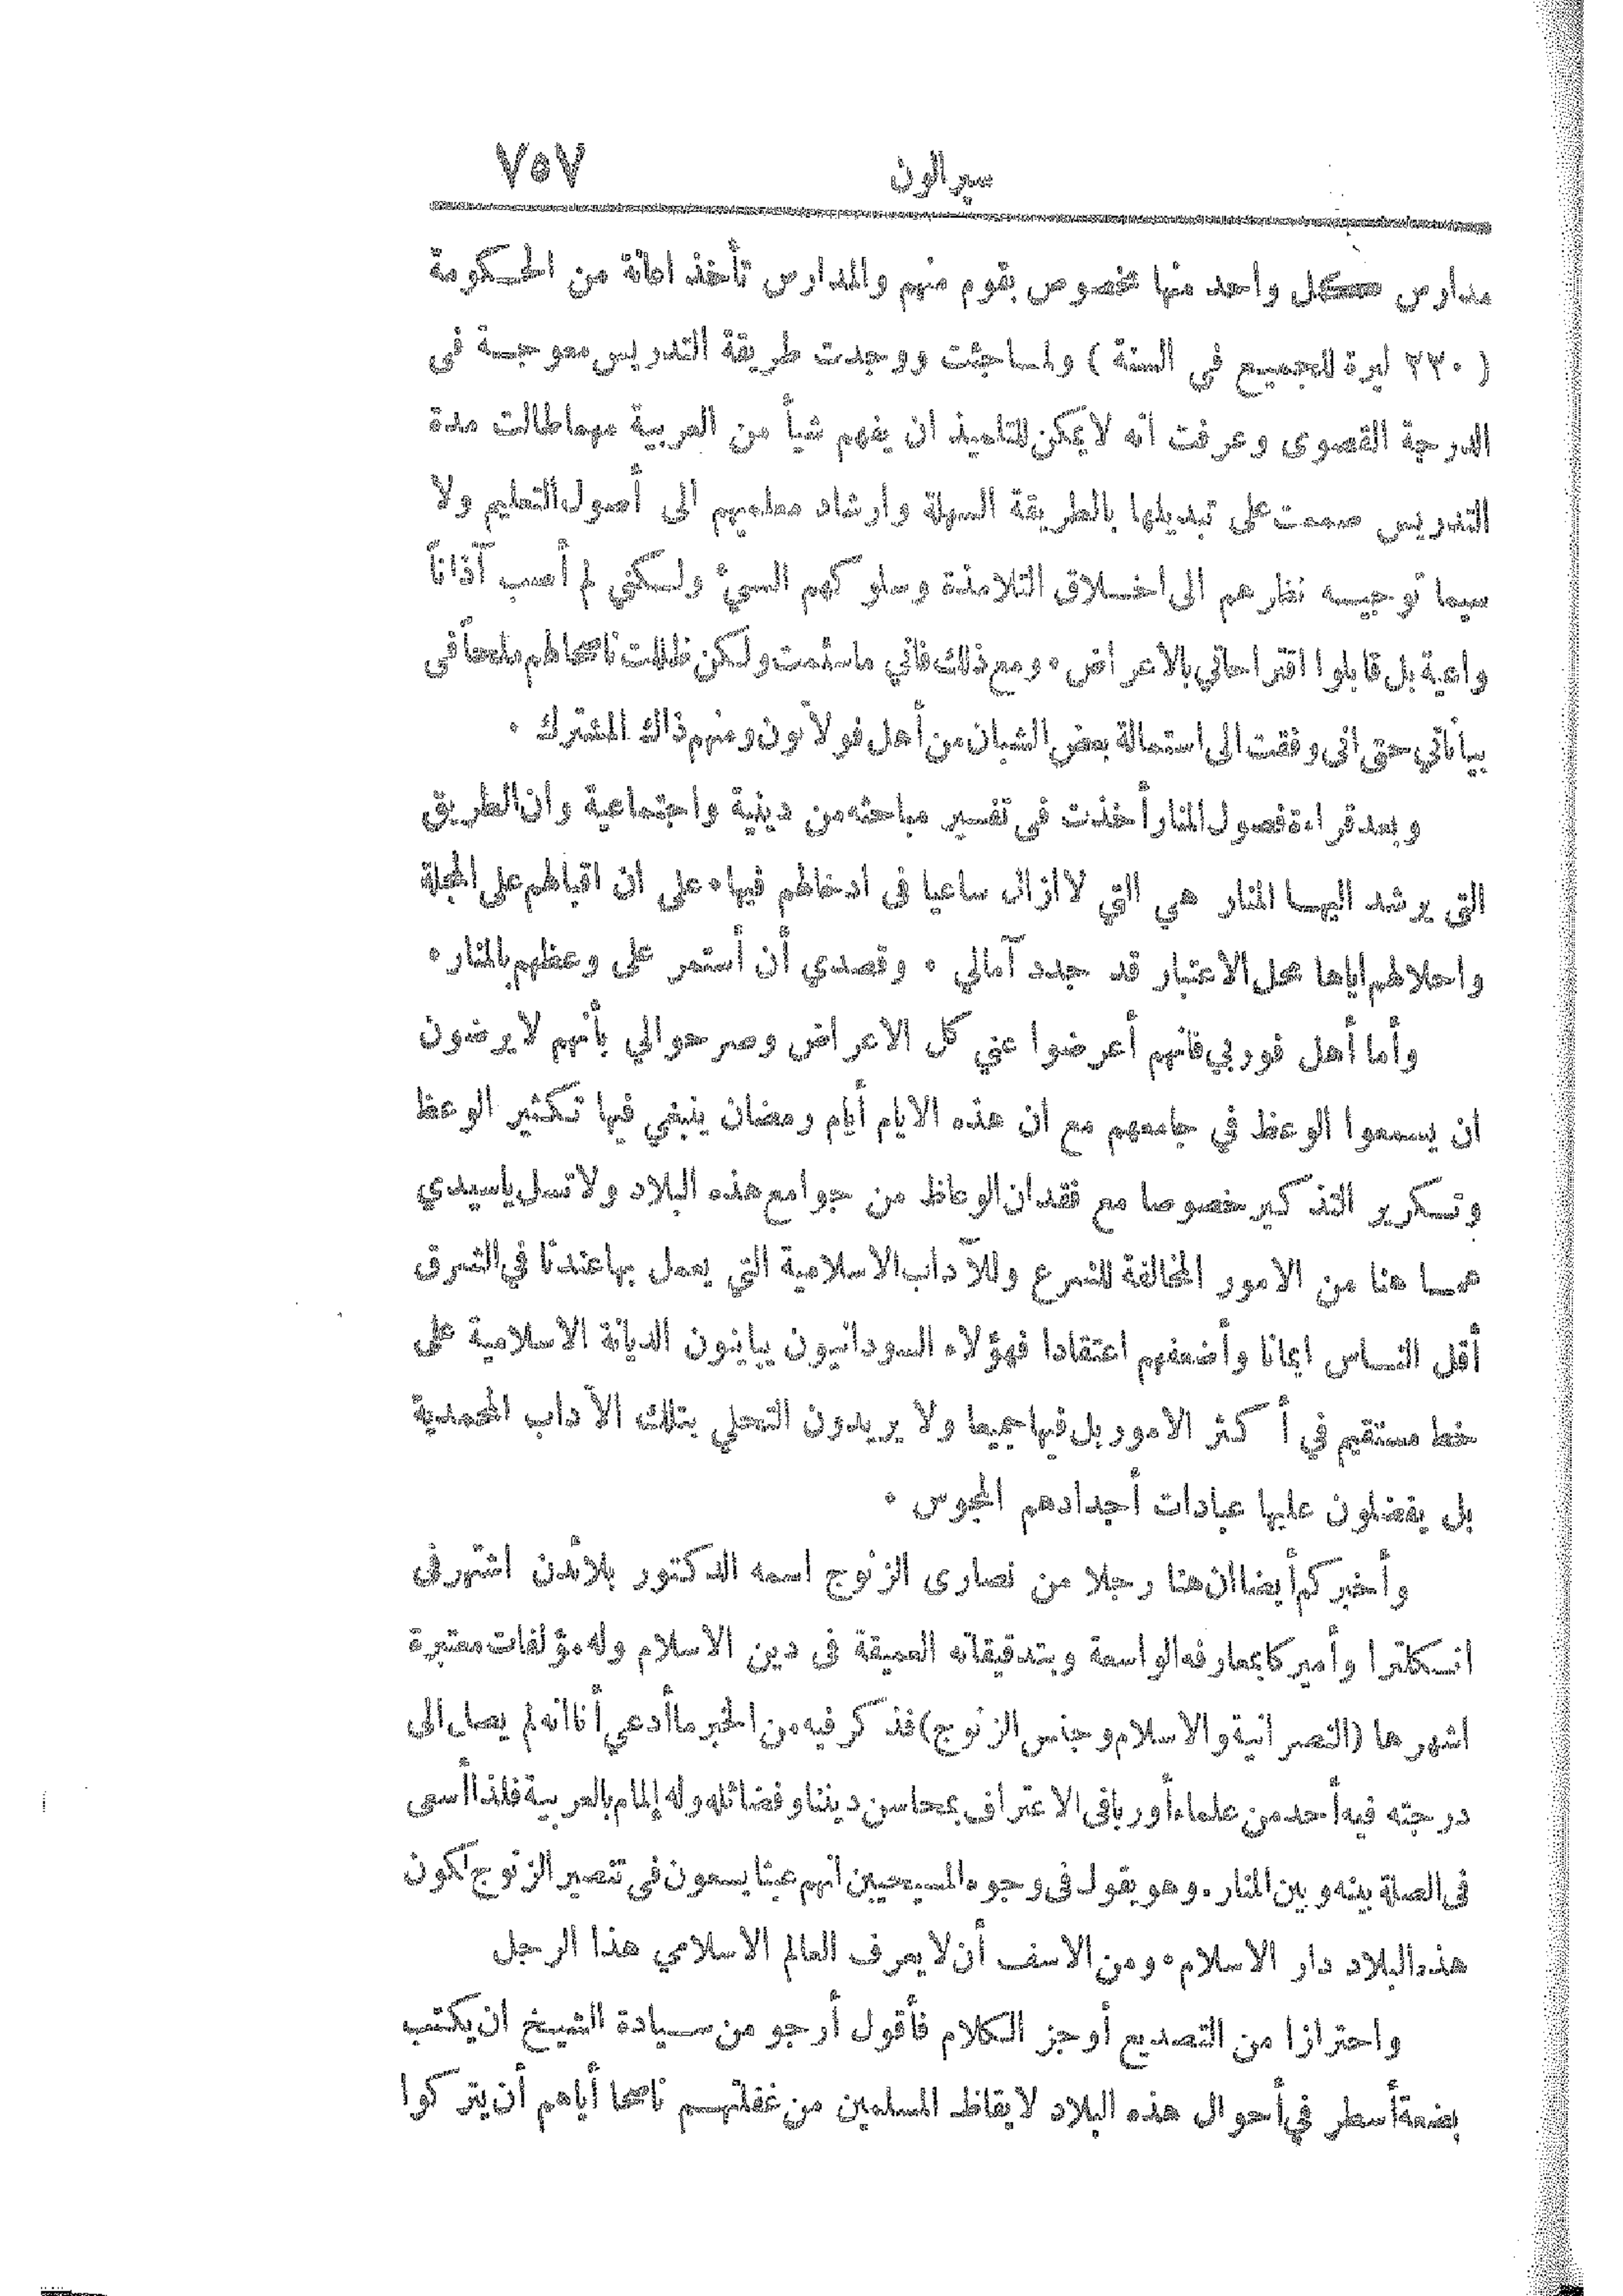 سيرالون ٧٥٧
مدارس كل واحد منها مخصوص بقوم منهم والمدارس تأخذ اعانة من الحكومة
( ٢٣٠ ليرة للجميع في السنة ) ولما جئت ووجدت طريقة التدريس معوجة في
الدرجة القصوى وعرفت انه لا يمكن للتلميذ ان يفهم شيأ من العربية مهما طالت مدة
التدريس صممت على تبديلها بالطريقة السهلة وارشاد معلميهم الى أصول التعليم ولا
سيما توجيه نظرهم الى اخلاق التلامذة وسلوكهم السيئ ولكني لم أصب آذاناً
واعية بل قابلوا اقتراحاتي بالاعراض . ومع ذلك فاني ماسئمت ولكن ظللت ناصحا لهم ملحاً في
بياناتي حتى اني وفقت الى استمالة بعض الشبان من أهل فولاتون ومنهم ذاك المشترك .
وبعد قراءة فصول المنار أخذت في تفسير مباحثه من دينية واجتماعية وان الطريق
التي يرشد اليها المنار هي التي لا ازال ساعيا في ادخالهم فيها . على ان اقبالهم على المجلة
واحلالهم اياها محل الاعتبار قد جدد آمالي . وقصدي أن أستمر على وعظهم بالمنار .
وأما أهل فوربي فانهم أعرضوا عني كل الاعراض وصرحوا لي بأنهم لا يرضون
ان يسمعوا الوعظ في جامعهم مع ان هذه الايام أيام رمضان ينبغي فيها تكثير الوعظ
وتكرير التذكير خصوصا مع فقدان الوعاظ من جوامع هذه البلاد ولا تسل ياسيدي
عما هنا من الامور المخالفة للشرع وللآداب الاسلامية التي يعمل بها عندنا في الشرق
أقل الناس ايمانا وأضعفهم اعتقادا فهؤلاء السودانيون يباينون الديانة الاسلامية على
خط مستقيم في أكثر الامور بل فيها جميعا ولا يريدون التحلي بتلك الآداب المحمدية
بل يفضلون عليها عبادات أجدادهم المجوس .
وأخبركم أيضا ان هنا رجلا من نصارى الزنوج اسمه الدكتور بلائدن اشتهر في
انكلترا وأميركا بمعارفه الواسعة وبتدقيقاته العميقة في دين الاسلام وله مؤلفات معتبرة
اشهرها (النصرانية والاسلام وجنس الزنوج) فذكر فيه من الخبر ما أدعي أنا انه لم يصل الى
درجته فيه أحد من علماء أوربا في الاعتراف بمحاسن ديننا وفضائله وله إلمام بالعربية فلذا أسعى
في الصلة بينه وبين المنار . وهو يقول في وجوه المسيحيين انهم عبثا يسعون في تنصير الزنوج لكون
هذه البلاد دار الاسلام . ومن الاسف أن لا يعرف العالم الاسلامي هذا الرجل
واحترازا من التصديع أوجز الكلام فأقول أرجو من سيادة الشيخ ان يكتب
بضعة أسطر في أحوال هذه البلاد لايقاظ المسلمين من غفلتهم ناصحا أياهم أن يتركوا